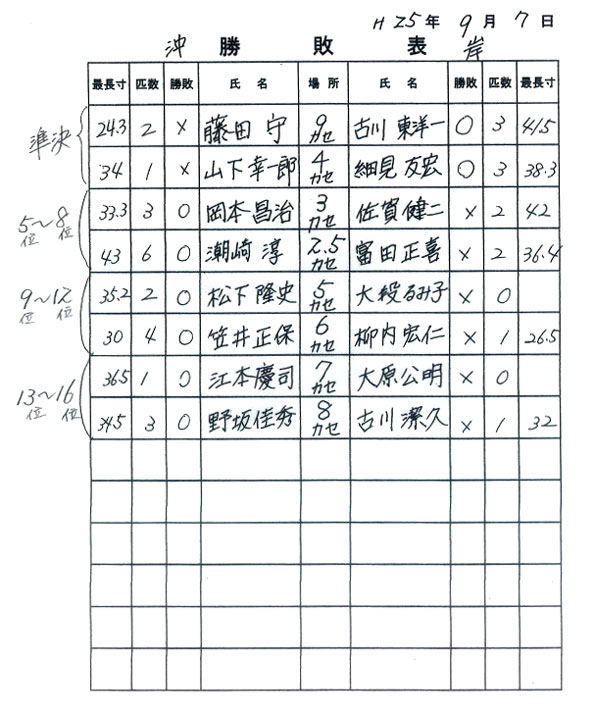 H25年9月7日
沖 勝敗表 岸
最長寸 匹数 勝敗 氏名 場所 氏名 勝敗 匹数 最長寸
準決
24.3 2 × 藤田 守 9カセ 古川 東洋一 ○ 3 41.5
34 1 × 山下幸一郎 4カセ 細見 友宏 ○ 3 38.3
5〜8位 位
33.3 3 ○ 岡本昌治 3カセ 佐賀健二 × 2 42
43 6 ○ 潮崎 淳 2.5カセ 富田正喜 × 2 36.4
9〜12位 位
35.2 2 ○ 松下隆史 5カセ 大殿るみ子 × 0
30 4 ○ 笠井正保 6カセ 柳内宏仁 × 1 26.5
13〜16位 位
36.5 1 ○ 江本慶司 7カセ 大原公明 × 0
34.5 3 ○ 野坂佳秀 8カセ 古川潔久 × 1 32